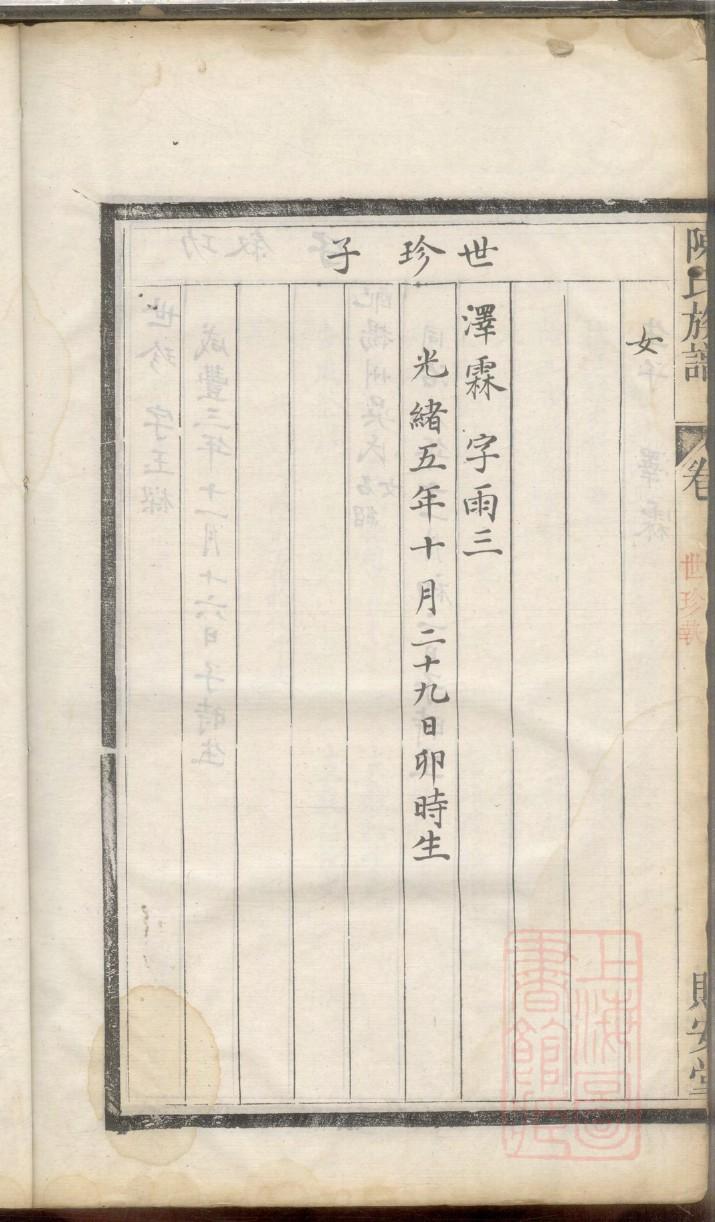 陳氏族譜
卷
世珍
女
世珍子
澤霖 字雨三
光緒五年十月二十九日卯時生
上海圖
書館藏